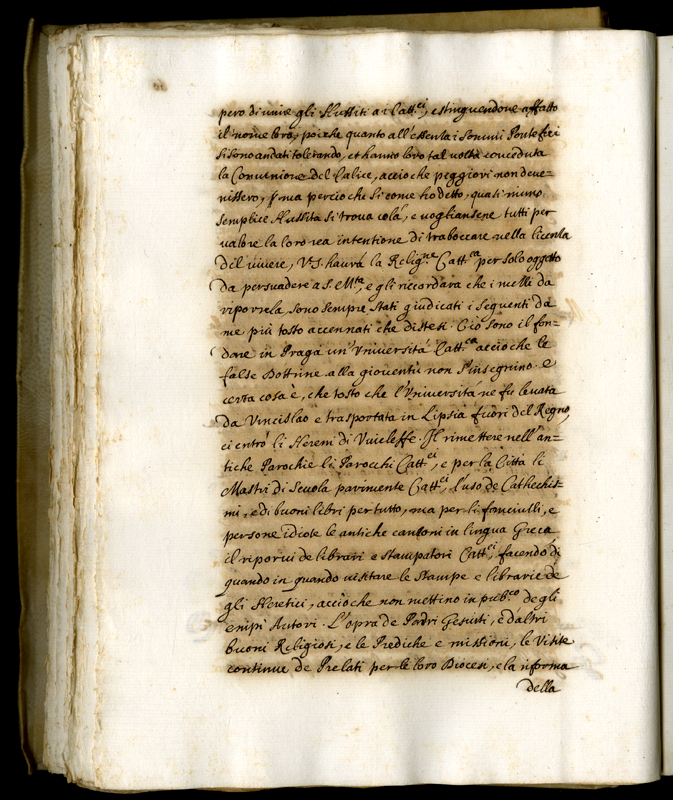 pero di unire gli Hussiti a i Catt.ci, estinguendone affatto
il nome loro, poiche quanto all'essenza i Sommi Pontefici
si sono andati tolerando, et hanno loro tal volta conceduta
la Comunione del Calice, accioche peggiori non deve=
nissero, ma percioche si come ho detto, quasi niuno
semplice Hussita si trova colà, e vogliansene tutti per
valere la loro rea intentione di traboccare nella licenza
del vivere, V.S. haurà la Relig.ne Catt.ca per solo oggetto
da persuadere a S. M.tà, e gli ricordara che i modi da
riporvela sono sempre stati giudicati i seguenti da
me più tosto accennati che distesi. Cio sono il fon=
dare in Praga un'Università Catt.ca accioche le
false Dottrine alla gioventù non s'insegnino. e
certa cosa è, che tosto che l'Università ne fu levata
da Vincislao e trasportata in Lipsia fuori del Regno,
ci entrò li Heresi di Vuicleffe. Il rimettere nell'an=
tiche Parochie li Parochi Catt.ci, e per la Città li
Mastri di Scuola parimente Catt.ci, l'uso de Cathechis=
mi, e di buoni libri per tutto, ma per li fanciulli, e
persone idiote le antiche canzoni in lingua Greca
il riporvi de librari e stampatori Catt.ci, facendo di
quando in quando visitare le stampe e librarie de
gli Heretici, accioche non mettino in pub.co degli
empi Autori. L'opra de Padri Gesuiti, e d'altri
buoni Religiosi, e le Prediche e missioni, le Visite
continue de Prelati per le loro Diocesi, e la riforma
della